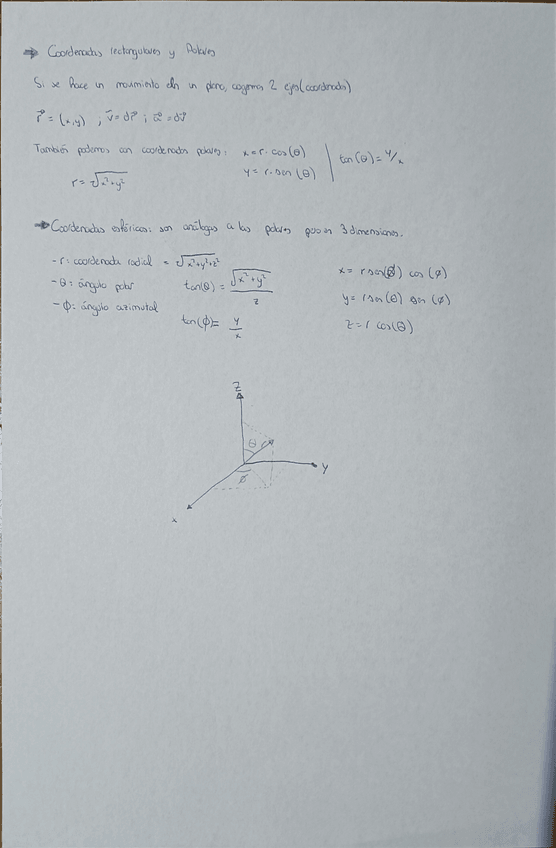 → Coordenadas rectangulares y Polares
Si se hace un movimiento en un plano, cogemos 2 ejes (coordenada)
r⃗ = (x,y) ; v⃗ = dr⃗ ; a⃗ = dv⃗
También podemos con coordenadas polares: x = r · cos(θ) | tan(θ) = y/x
y = r · sen(θ)
r = √x²+y²
→ Coordenadas esféricas: son análogas a las polares pero en 3 dimensiones.
- r: coordenada radial = √x²+y²+z²
- θ: ángulo polar tan(θ) = √x²+y² / z
- φ: ángulo azimutal
tan(φ) = y/x
x = r sen(θ) cos(φ)
y = r sen(θ) sen(φ)
z = r cos(θ)
Z
θ r
Y
φ
x